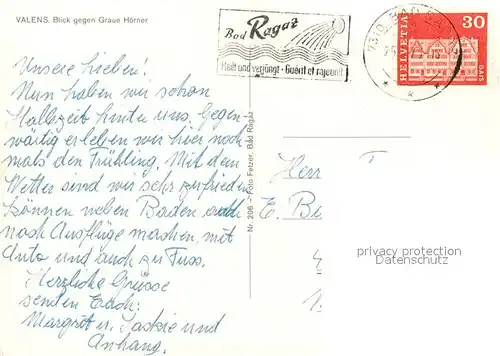 VALENS. Blick gegen Graue Hörner
Bad Ragaz
Heilt und verjüngt · Guérit et rajeunit
7310 BAD RAGAZ
HELVETIA 30
GAIS
Unsere Lieben!
Nun haben wir schon
Halbzeit hinter uns. Gegen-
wärtig erleben wir hier noch
mals den Frühling. Mit dem
Wetter sind wir sehr zufrieden
können neben Baden auch
noch Ausflüge machen, mit
Auto und auch zu Fuss.
Herzliche Grüsse
senden Euch:
Margrit u. Jackie und
Anhang.
Nr. 206 - Foto Fetzer, Bad Ragaz
Herr T
E. Bi
privacy protection
Datenschutz